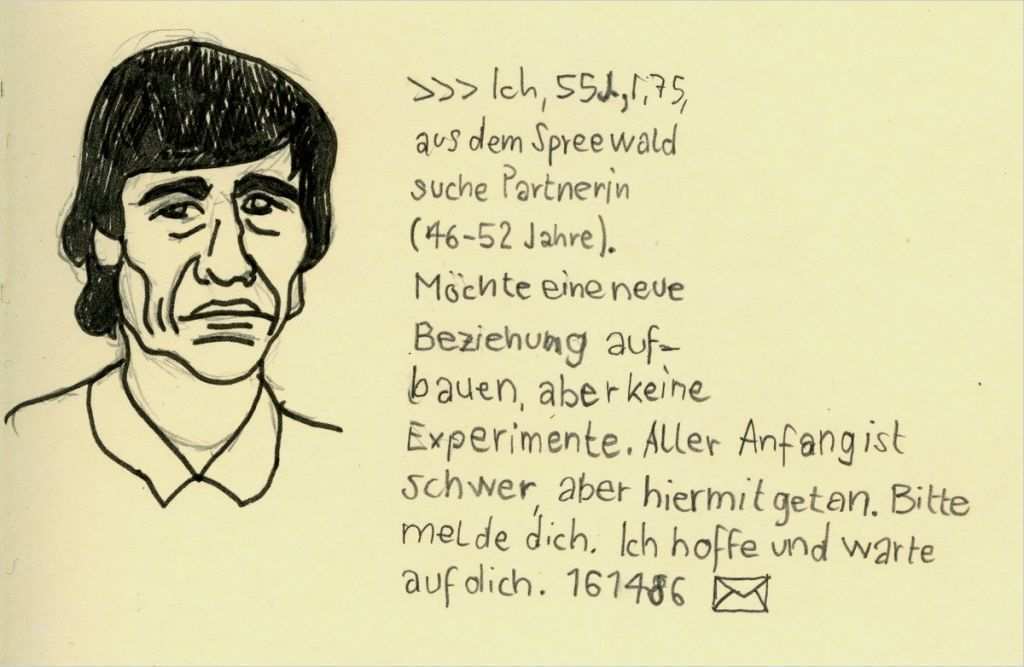 >>> Ich, 55J., 1,75,
aus dem Spreewald
suche Partnerin
(46-52 Jahre).
Möchte eine neue
Beziehung auf-
bauen, aber keine
Experimente. Aller Anfang ist
schwer, aber hiermit getan. Bitte
melde dich. Ich hoffe und warte
auf dich. 161486